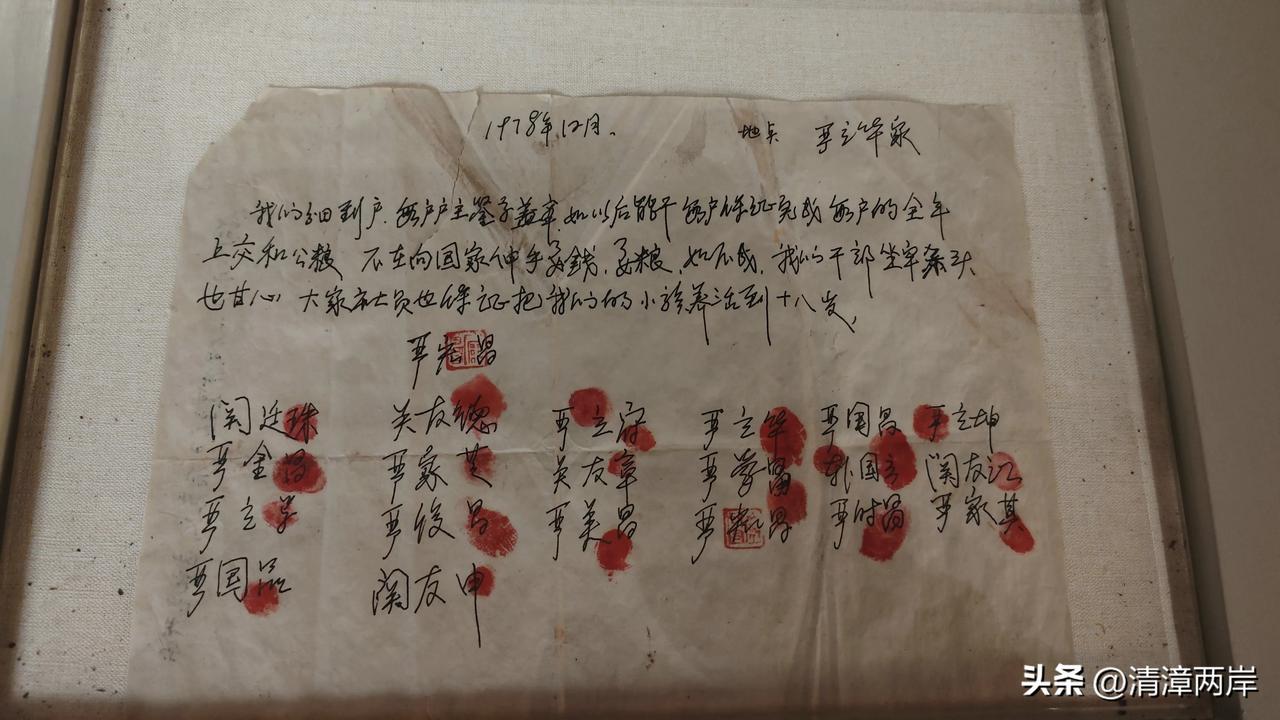 1978年12月. 地点 严立华家
我们分田到户.每户户主签字盖章.如以后能干每户保证完成每户的全年
上交和公粮 不在向国家伸手要钱.要粮.如不成.我们干部坐牢杀头
也甘心 大家社员也保证把我们的小孩养活到十八岁
严宏昌
関廷珠 关友德 严立符 严立华 严国昌 严立坤
严金昌 严家芝 关友章 严学昌 韩国云 関友江
严立学 严俊昌 严美昌 严宏昌 严付昌 严家其
严国品 関友申
头条 @清漳两岸